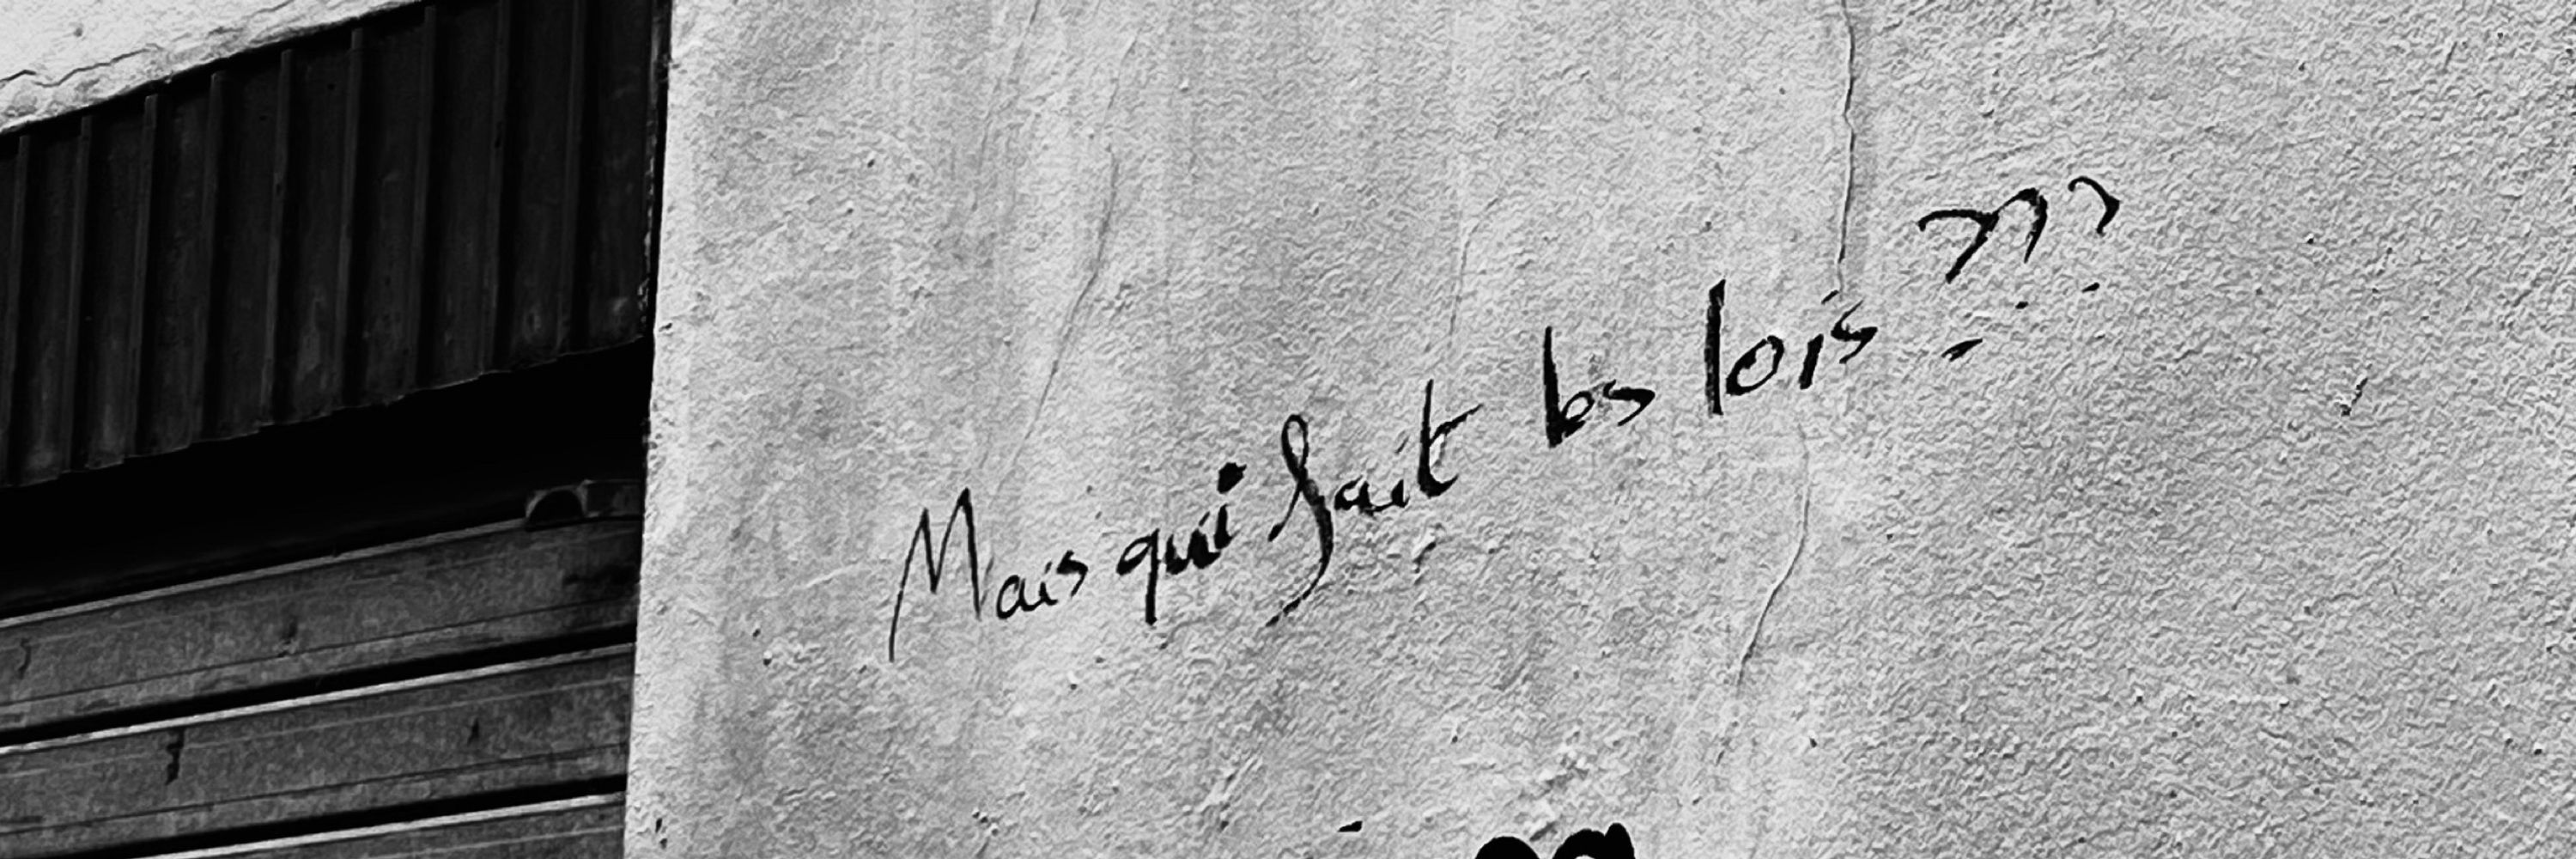 Mais qui fait les lois ???